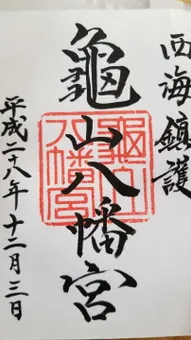 西海鎮護
龜山八幡宮
平成二十八年十二月三日